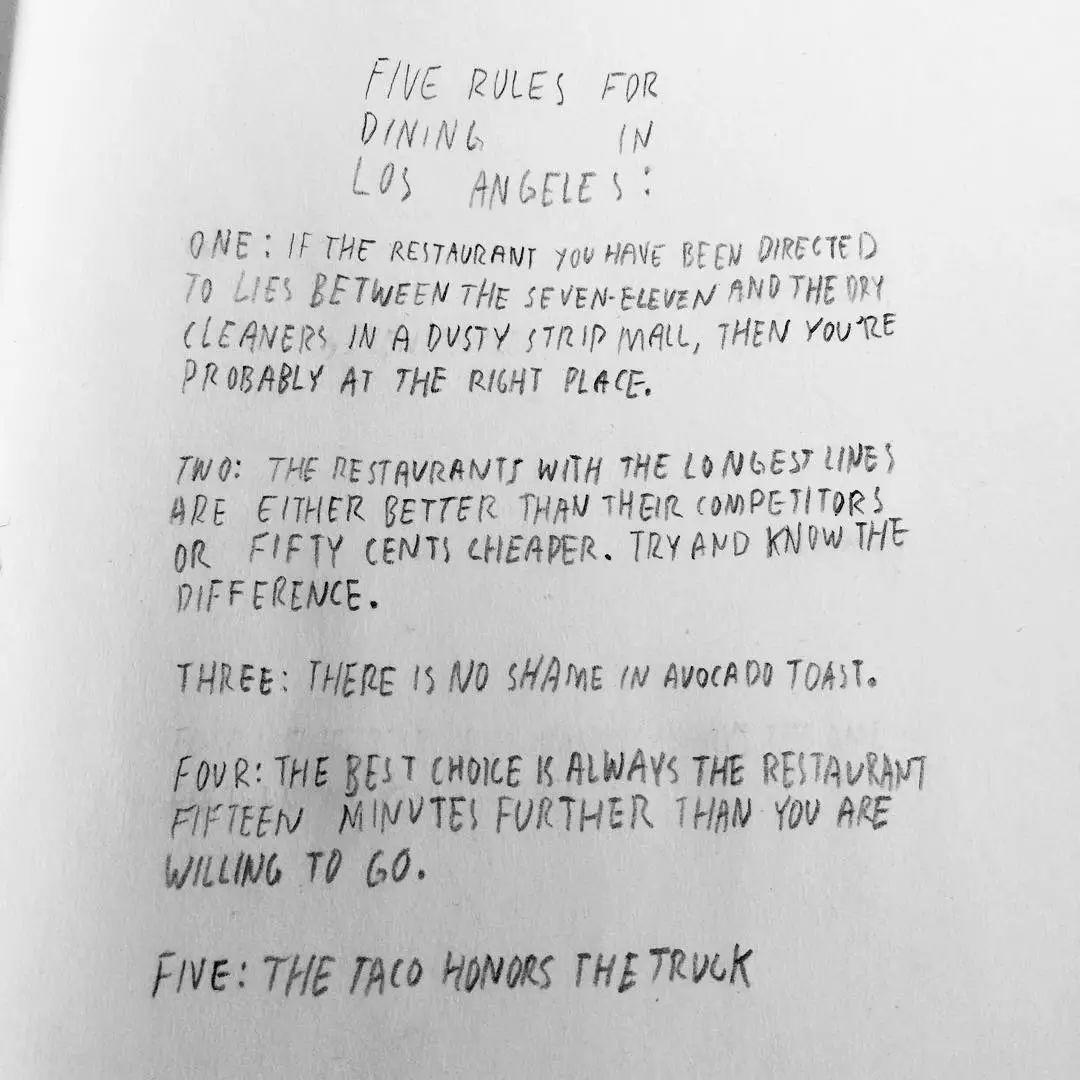 FIVE RULES FOR
DINING IN
LOS ANGELES:
ONE: IF THE RESTAURANT YOU HAVE BEEN DIRECTED
TO LIES BETWEEN THE SEVEN-ELEVEN AND THE DRY
CLEANERS IN A DUSTY STRIP MALL, THEN YOU'RE
PROBABLY AT THE RIGHT PLACE.
TWO: THE RESTAURANTS WITH THE LONGEST LINES
ARE EITHER BETTER THAN THEIR COMPETITORS
OR FIFTY CENTS CHEAPER. TRY AND KNOW THE
DIFFERENCE.
THREE: THERE IS NO SHAME IN AVOCADO TOAST.
FOUR: THE BEST CHOICE IS ALWAYS THE RESTAURANT
FIFTEEN MINUTES FURTHER THAN YOU ARE
WILLING TO GO.
FIVE: THE TACO HONORS THE TRUCK